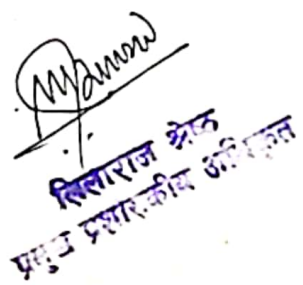 लिलाराज श्रेष्ठ
प्रमुख प्रशासकीय अधिकृत